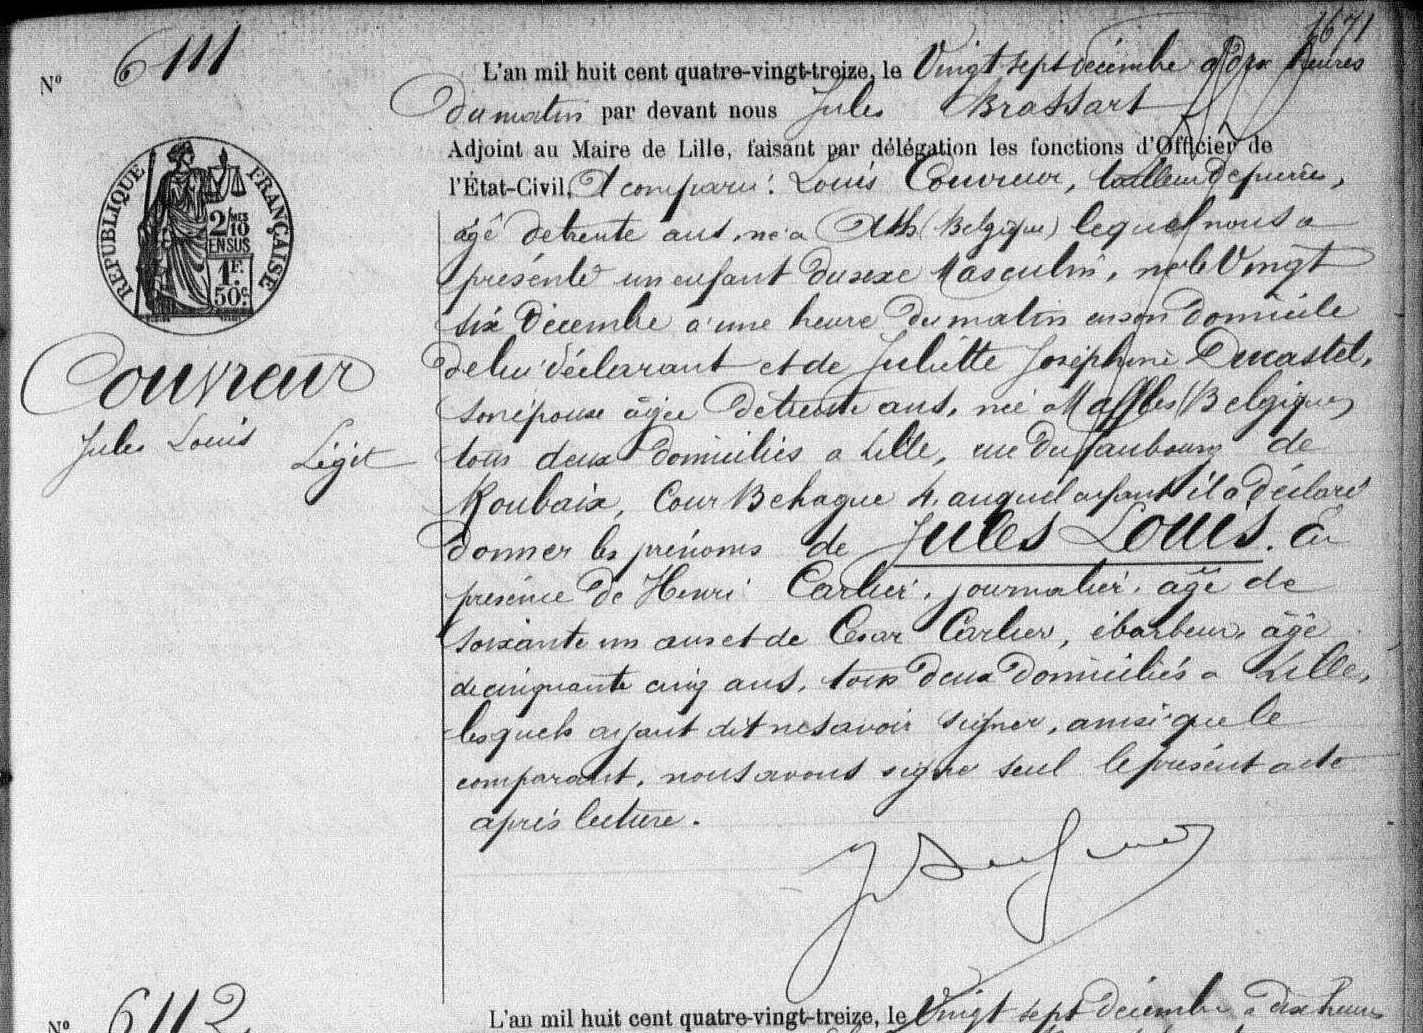 1671
N° 6111
L'an mil huit cent quatre-vingt-treize, le Vingt sept décembre à dix heures
du matin par devant nous Jules Brassart
Adjoint au Maire de Lille, faisant par délégation les fonctions d'Officier de
l'État-Civil, A comparu: Louis Couvreur, tailleur de pierres,
âgé de trente ans, né à Ath (Belgique) lequel nous a
présenté un enfant du sexe Masculin, né le Vingt
six Décembre à une heure du matin en son Domicile
de lui déclarant et de Juliette Joséphine Ducastel,
son épouse âgée de trente ans, née à Maffles (Belgique)
tous deux domiciliés à Lille, rue du faubourg de
Roubaix, Cour Behague 4, auquel enfant il a déclaré
donner les prénoms de Jules Louis. En
présence de Henri Carlier, journalier, âgé de
soixante un ans et de César Carlier, ébarbeur, âgé
de cinquante cinq ans, tous deux Domiciliés à Lille,
lesquels ayant dit ne savoir signer, ainsi que le
comparant, nous avons signé seul le présent acte
après lecture.
RÉPUBLIQUE FRANÇAISE
2/10 MES
EN SUS
1F.
50c.
Couvreur
Jules Louis
Légit
N° 6112
L'an mil huit cent quatre-vingt-treize, le Vingt sept Décembre à dix heures